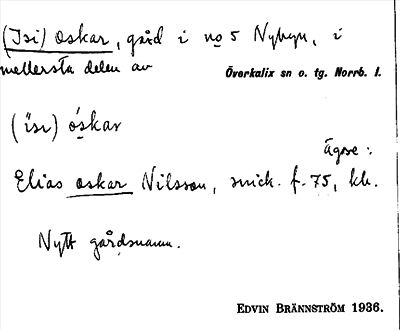 (Isi) oskar, gård i no 5 Nybyn, i
mellersta delen av
Överkalix sn o. tg. Norrb. l.
(ìsı) óskar
Ägare:
Elias oskar Nilsson, snick. f. 75, kh.
Nytt gårdsnamn.
EDVIN BRÄNNSTRÖM 1936.